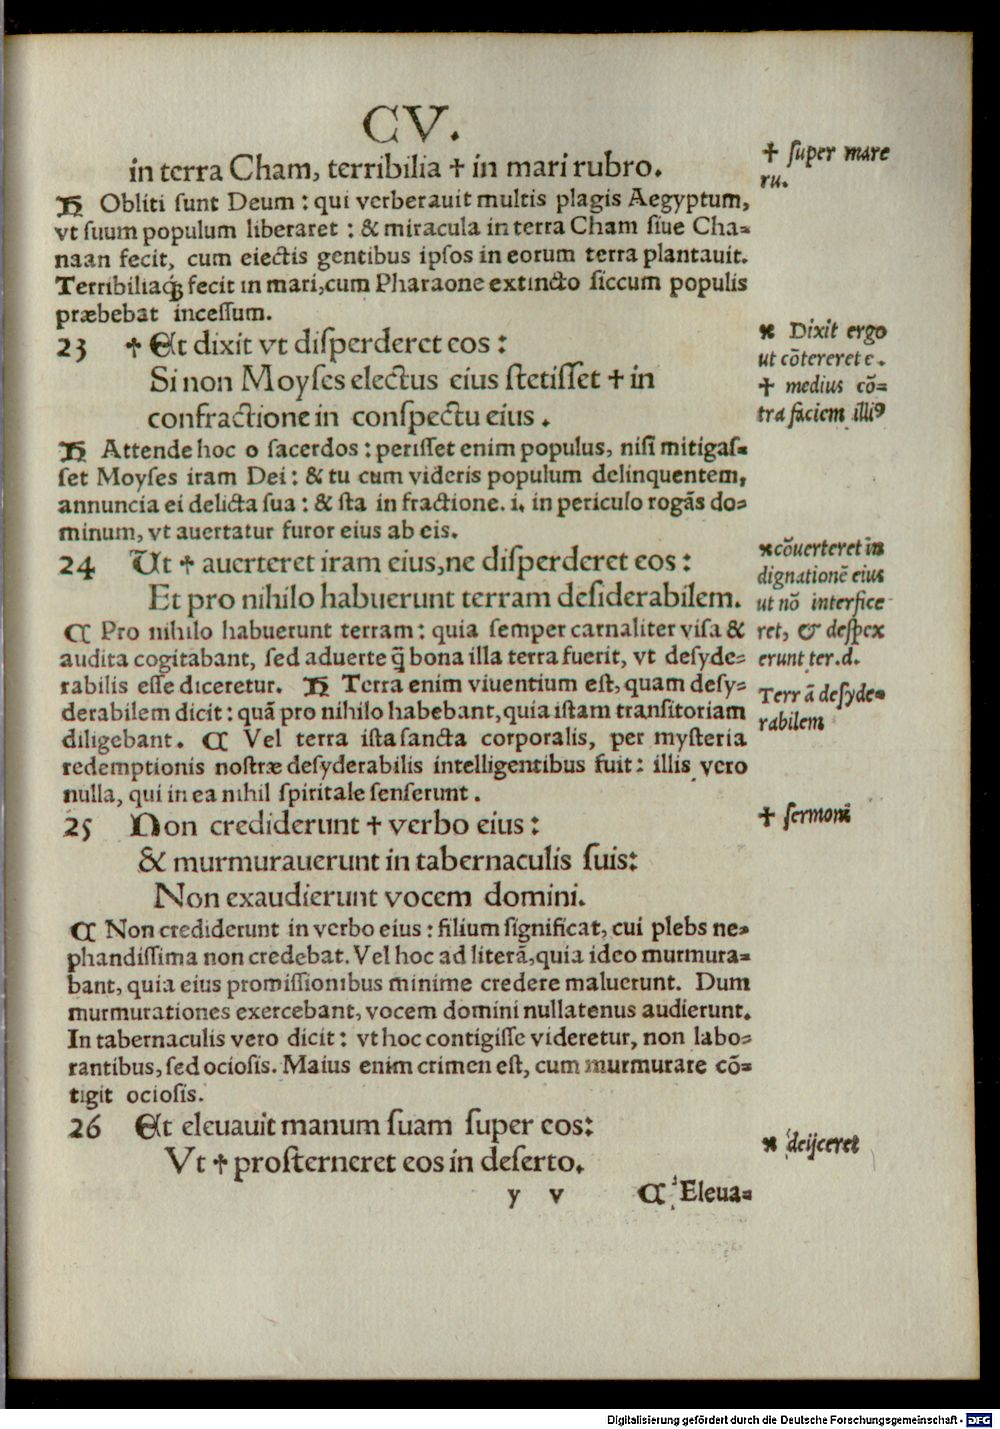 CV.
in terra Cham, terribilia ✝ in mari rubro.
✝ ſuper mare
ru.
H Obliti ſunt Deum : qui verberauit multis plagis Aegyptum,
vt ſuum populum liberaret : & miracula in terra Cham ſiue Cha⸗
naan fecit, cum eiectis gentibus ipſos in eorum terra plantauit.
Terribiliaqꝫ fecit in mari, cum Pharaone extincto ſiccum populis
præbebat inceſſum.
23 ✝ Et dixit vt diſperderet eos :
Si non Moyſes electus eius ſtetiſſet ✝ in
confractione in conſpectu eius .
⁕ Dixit ergo
ut cōtereret e .
✝ medius cō⸗
tra faciem illiꝰ
H Attende hoc o ſacerdos : periſſet enim populus, niſi mitigaſ⸗
ſet Moyſes iram Dei : & tu cum videris populum delinquentem,
annuncia ei delicta ſua : & ſta in fractione. i. in periculo rogās do⸗
minum, vt auertatur furor eius ab eis.
24 Ut ✝ auerteret iram eius, ne diſperderet eos :
Et pro nihilo habuerunt terram deſiderabilem.
⁕ cōuerteret in
dignationē eius
ut nō interfice
ret, & deſpex
erunt ter. d.
Terrā deſyde⸗
rabilem
C Pro nihilo habuerunt terram : quia ſemper carnaliter viſa &
audita cogitabant, ſed aduerte q̄ bona illa terra fuerit, vt deſyde⸗
rabilis eſſe diceretur. H Terra enim viuentium eſt, quam deſy⸗
derabilem dicit : quā pro nihilo habebant, quia iſtam tranſitoriam
diligebant. C Vel terra iſta ſancta corporalis, per myſteria
redemptionis noſtræ deſyderabilis intelligentibus fuit : illis vero
nulla, qui in ea nihil ſpiritale ſenſerunt .
25 Non crediderunt ✝ verbo eius :
& murmurauerunt in tabernaculis ſuis:
Non exaudierunt vocem domini.
✝ ſermoni
C Non crediderunt in verbo eius : filium ſignificat, cui plebs ne⸗
phandiſſima non credebat. Vel hoc ad literā, quia ideo murmura⸗
bant, quia eius promiſſionibus minime credere maluerunt. Dum
murmurationes exercebant, vocem domini nullatenus audierunt.
In tabernaculis vero dicit : vt hoc contigiſſe videretur, non labo⸗
rantibus, ſed ocioſis. Maius enim crimen eſt, cum murmurare cō⸗
tigit ocioſis.
26 Et eleuauit manum ſuam ſuper eos:
Vt ✝ proſterneret eos in deſerto.
⁕ deijceret
y v C Eleua⸗
Digitalisierung gefördert durch die Deutsche Forschungsgemeinschaft - DFG